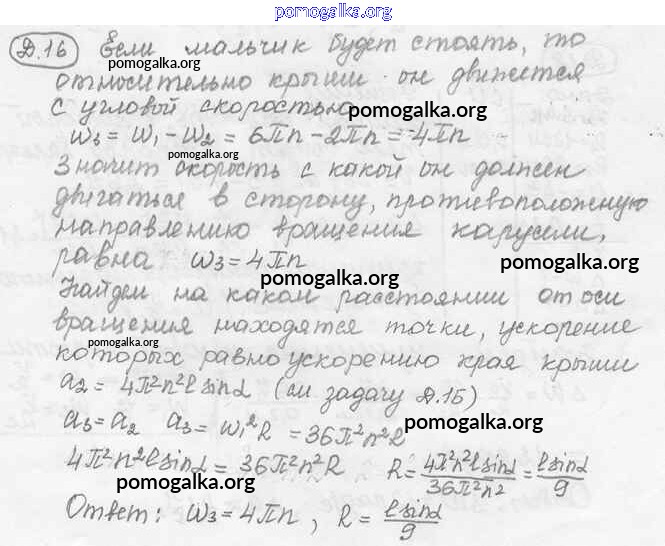 pomogalka.org
Д.16 Если мальчик будет стоять, то
относительно крыши он движется
с угловой скоростью
pomogalka.org
pomogalka.org
ω₃ = ω₁ - ω₂ = 6πn - 2πn = 4πn
pomogalka.org
Значит скорость с какой он должен
двигаться в сторону, противоположную
направлению вращения карусели,
равна ω₃ = 4πn
pomogalka.org
pomogalka.org
Найдем на каком расстоянии от оси
вращения находятся точки, ускорение
pomogalka.org
которых равно ускорению края крыши
a₂ = 4π²n²l sinα (см задачу Д.15)
a₃ = a₂ a₃ = ω₁²R = 36π²n²R
pomogalka.org
4π²n²l sinα = 36π²n²R R = 4π²n²l sinα / 36π²n² = l sinα / 9
pomogalka.org
Ответ: ω₃ = 4πn, R = l sinα / 9
pomogalka.org